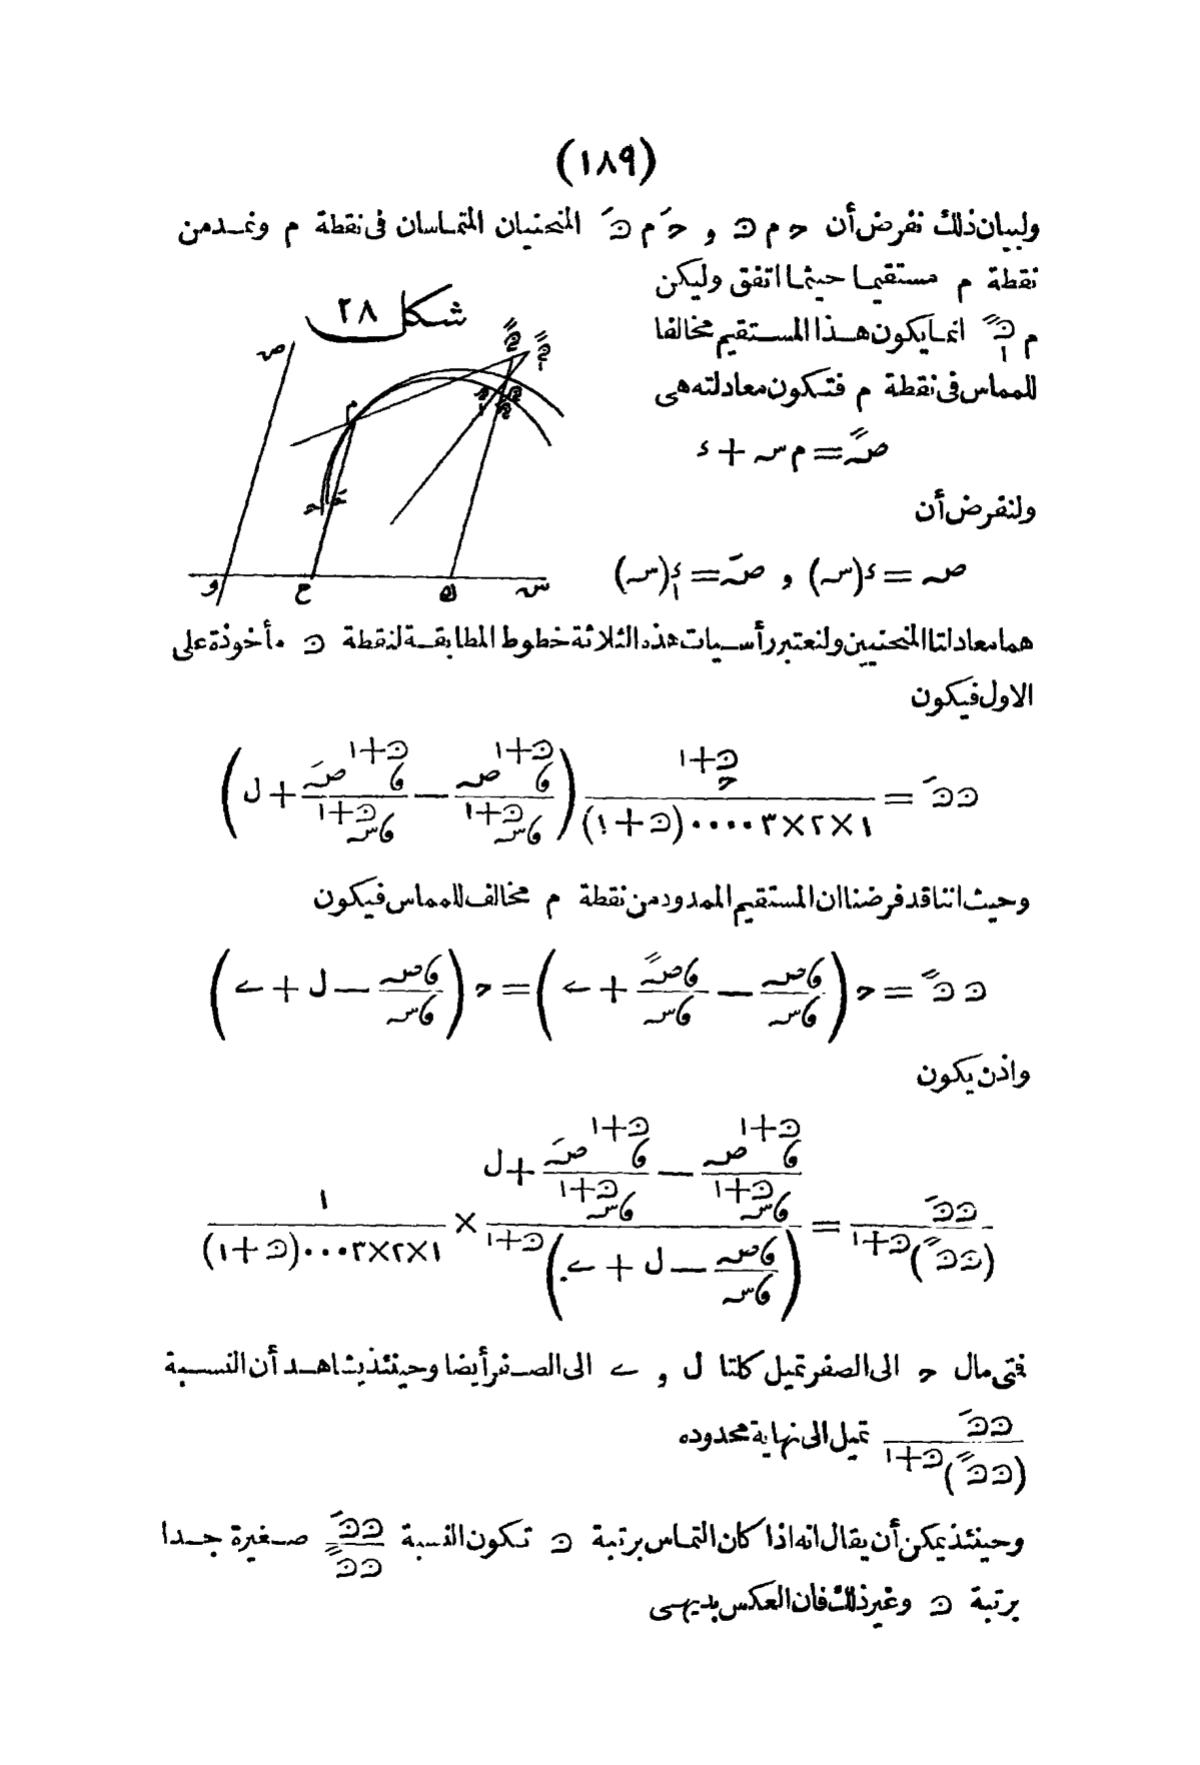 (١٨٩)
ولبيان ذلك نفرض أن ح م ں و حَ م ںَ المنحنيان المتماسان فى نقطة م ونمد من
نقطة م مستقيما حيثما اتفق وليكن
م ں انما يكون هذا المستقيم مخالفا
للمماس فى نقطة م فتكون معادلته هى
شكل ٢٨
ص م ح حَ و ح ں س
صً = م س + ء
ولنفرض أن
ص = ء(س) و صَ = ء١(س)
هما معادلتا المنحنيين ولنعتبر رأسيات هذه الثلاثة خطوط المطابقة لنقطة ں مأخوذة على
الاول فيكون
ں ںَ = ح^(ں+١) / ١×٢×٣....(ں+١) (ﻭ^(ں+١) ص / ﻭ س^(ں+١) − ﻭ^(ں+١) صَ / ﻭ س^(ں+١) + ل)
وحيث اننا قد فرضنا ان المستقيم الممدود من نقطة م مخالف للمماس فيكون
ں ںً = ح (ﻭص / ﻭس − ﻭصً / ﻭس + ے) = ح (ﻭص / ﻭس − ل + ے)
واذن يكون
ں ںَ / (ں ںً)^(ں+١) = (ﻭ^(ں+١) ص / ﻭ س^(ں+١) − ﻭ^(ں+١) صَ / ﻭ س^(ں+١) + ل) / (ﻭص / ﻭس − ل + ے)^(ں+١) × ١ / ١×٢×٣...(ں+١)
فتى مال ح الى الصفر تميل كلتا ل و ے الى الصفر أيضا وحينئذ يشاهد أن النسبة
ں ںَ / (ں ںً)^(ں+١) تميل الى نهاية محدوده
وحينئذ يمكن أن يقال انه اذا كان التماس برتبة ں تكون النسبة ں ںَ / ں ںً صغيرة جدا
برتبة ں وغير ذلك فان العكس بديهى